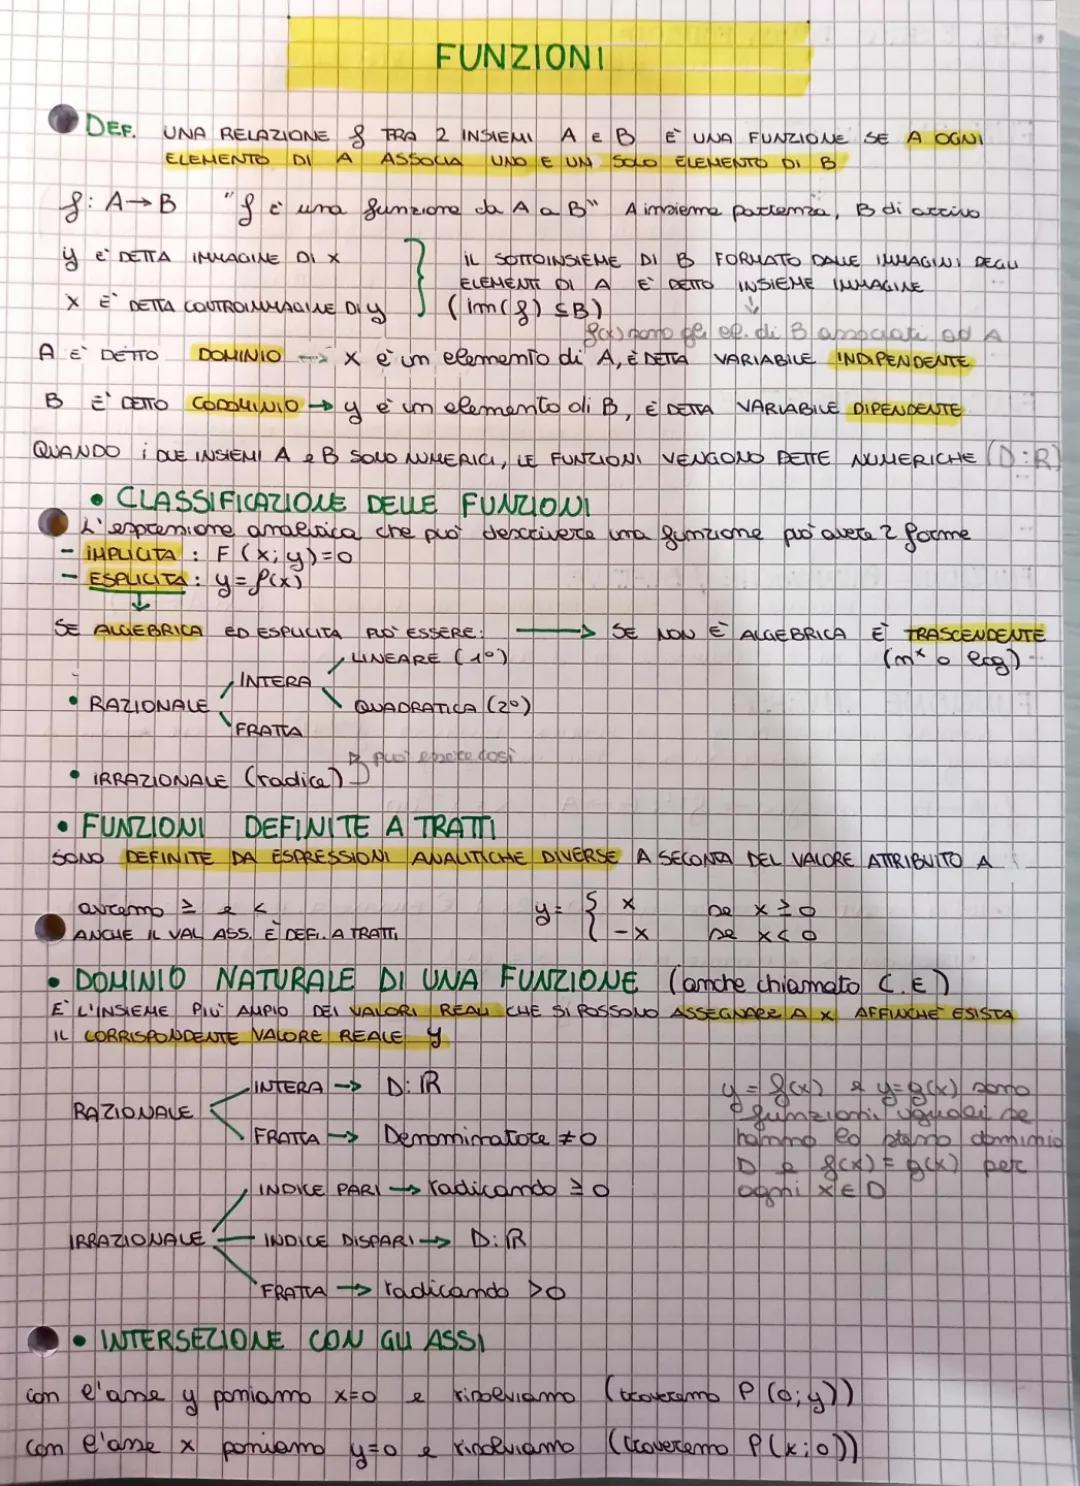 FUNZIONI
DEF. UNA RELAZIONE f TRA 2 INSIEMI A e B E' UNA FUNZIONE SE A OGNI
ELEMENTO DI A ASSOCIA UNO E UN SOLO ELEMENTO DI B
f: A→B "f è una funzione da A a B" A insieme partenza, B di arrivo
y E' DETTA IMMAGINE DI X
X E' DETTA CONTROIMMAGINE DI y
IL SOTTOINSIEME DI B FORMATO DALLE IMMAGINI DEGLI
ELEMENTI DI A E' DETTO INSIEME IMMAGINE
(im(f) ⊆B)
f(x) sono gli el. di B associati ad A
A E' DETTO DOMINIO → X è un elemento di A, È DETTA VARIABILE INDIPENDENTE
B E' DETTO CODOMINIO → y è un elemento di B, È DETTA VARIABILE DIPENDENTE
QUANDO i DUE INSIEMI A e B SONO NUMERICI, LE FUNZIONI VENGONO DETTE NUMERICHE (D:R)
• CLASSIFICAZIONE DELLE FUNZIONI
L'espressione analitica che può descrivere una funzione può avere 2 forme
- IMPLICITA : F(x;y)=0
- ESPLICITA : y=f(x)
SE ALGEBRICA ED ESPLICITA PUO' ESSERE: → SE NON E' ALGEBRICA E' TRASCENDENTE
(m^x o log)
LINEARE (1°)
INTERA
• RAZIONALE
QUADRATICA (2°)
FRATTA
può essere così
• IRRAZIONALE (radice)
• FUNZIONI DEFINITE A TRATTI
SONO DEFINITE DA ESPRESSIONI ANALITICHE DIVERSE A SECONDA DEL VALORE ATTRIBUITO A
avremo ≥ e <
ANCHE IL VAL. ASS. È DEFI. A TRATTI
y= { x se x≥0
-x se x<0
• DOMINIO NATURALE DI UNA FUNZIONE (anche chiamato C.E)
E' L'INSIEME PIU' AMPIO DEI VALORI REALI CHE SI POSSONO ASSEGNARE A X AFFINCHE' ESISTA
IL CORRISPONDENTE VALORE REALE y
RAZIONALE
INTERA → D: R
FRATTA → Denominatore ≠0
y=f(x) e y=g(x) sono
funzioni uguali se
hanno lo stesso dominio
D e f(x)=g(x) per
ogni x∈D
IRRAZIONALE
INDICE PARI → radicando ≥0
INDICE DISPARI → D: R
FRATTA → radicando >0
• INTERSEZIONE CON GLI ASSI
con l'asse y poniamo x=0 e risolviamo (troveremo P(0;y))
con l'asse x poniamo y=0 e risolviamo (troveremo P(x;0))